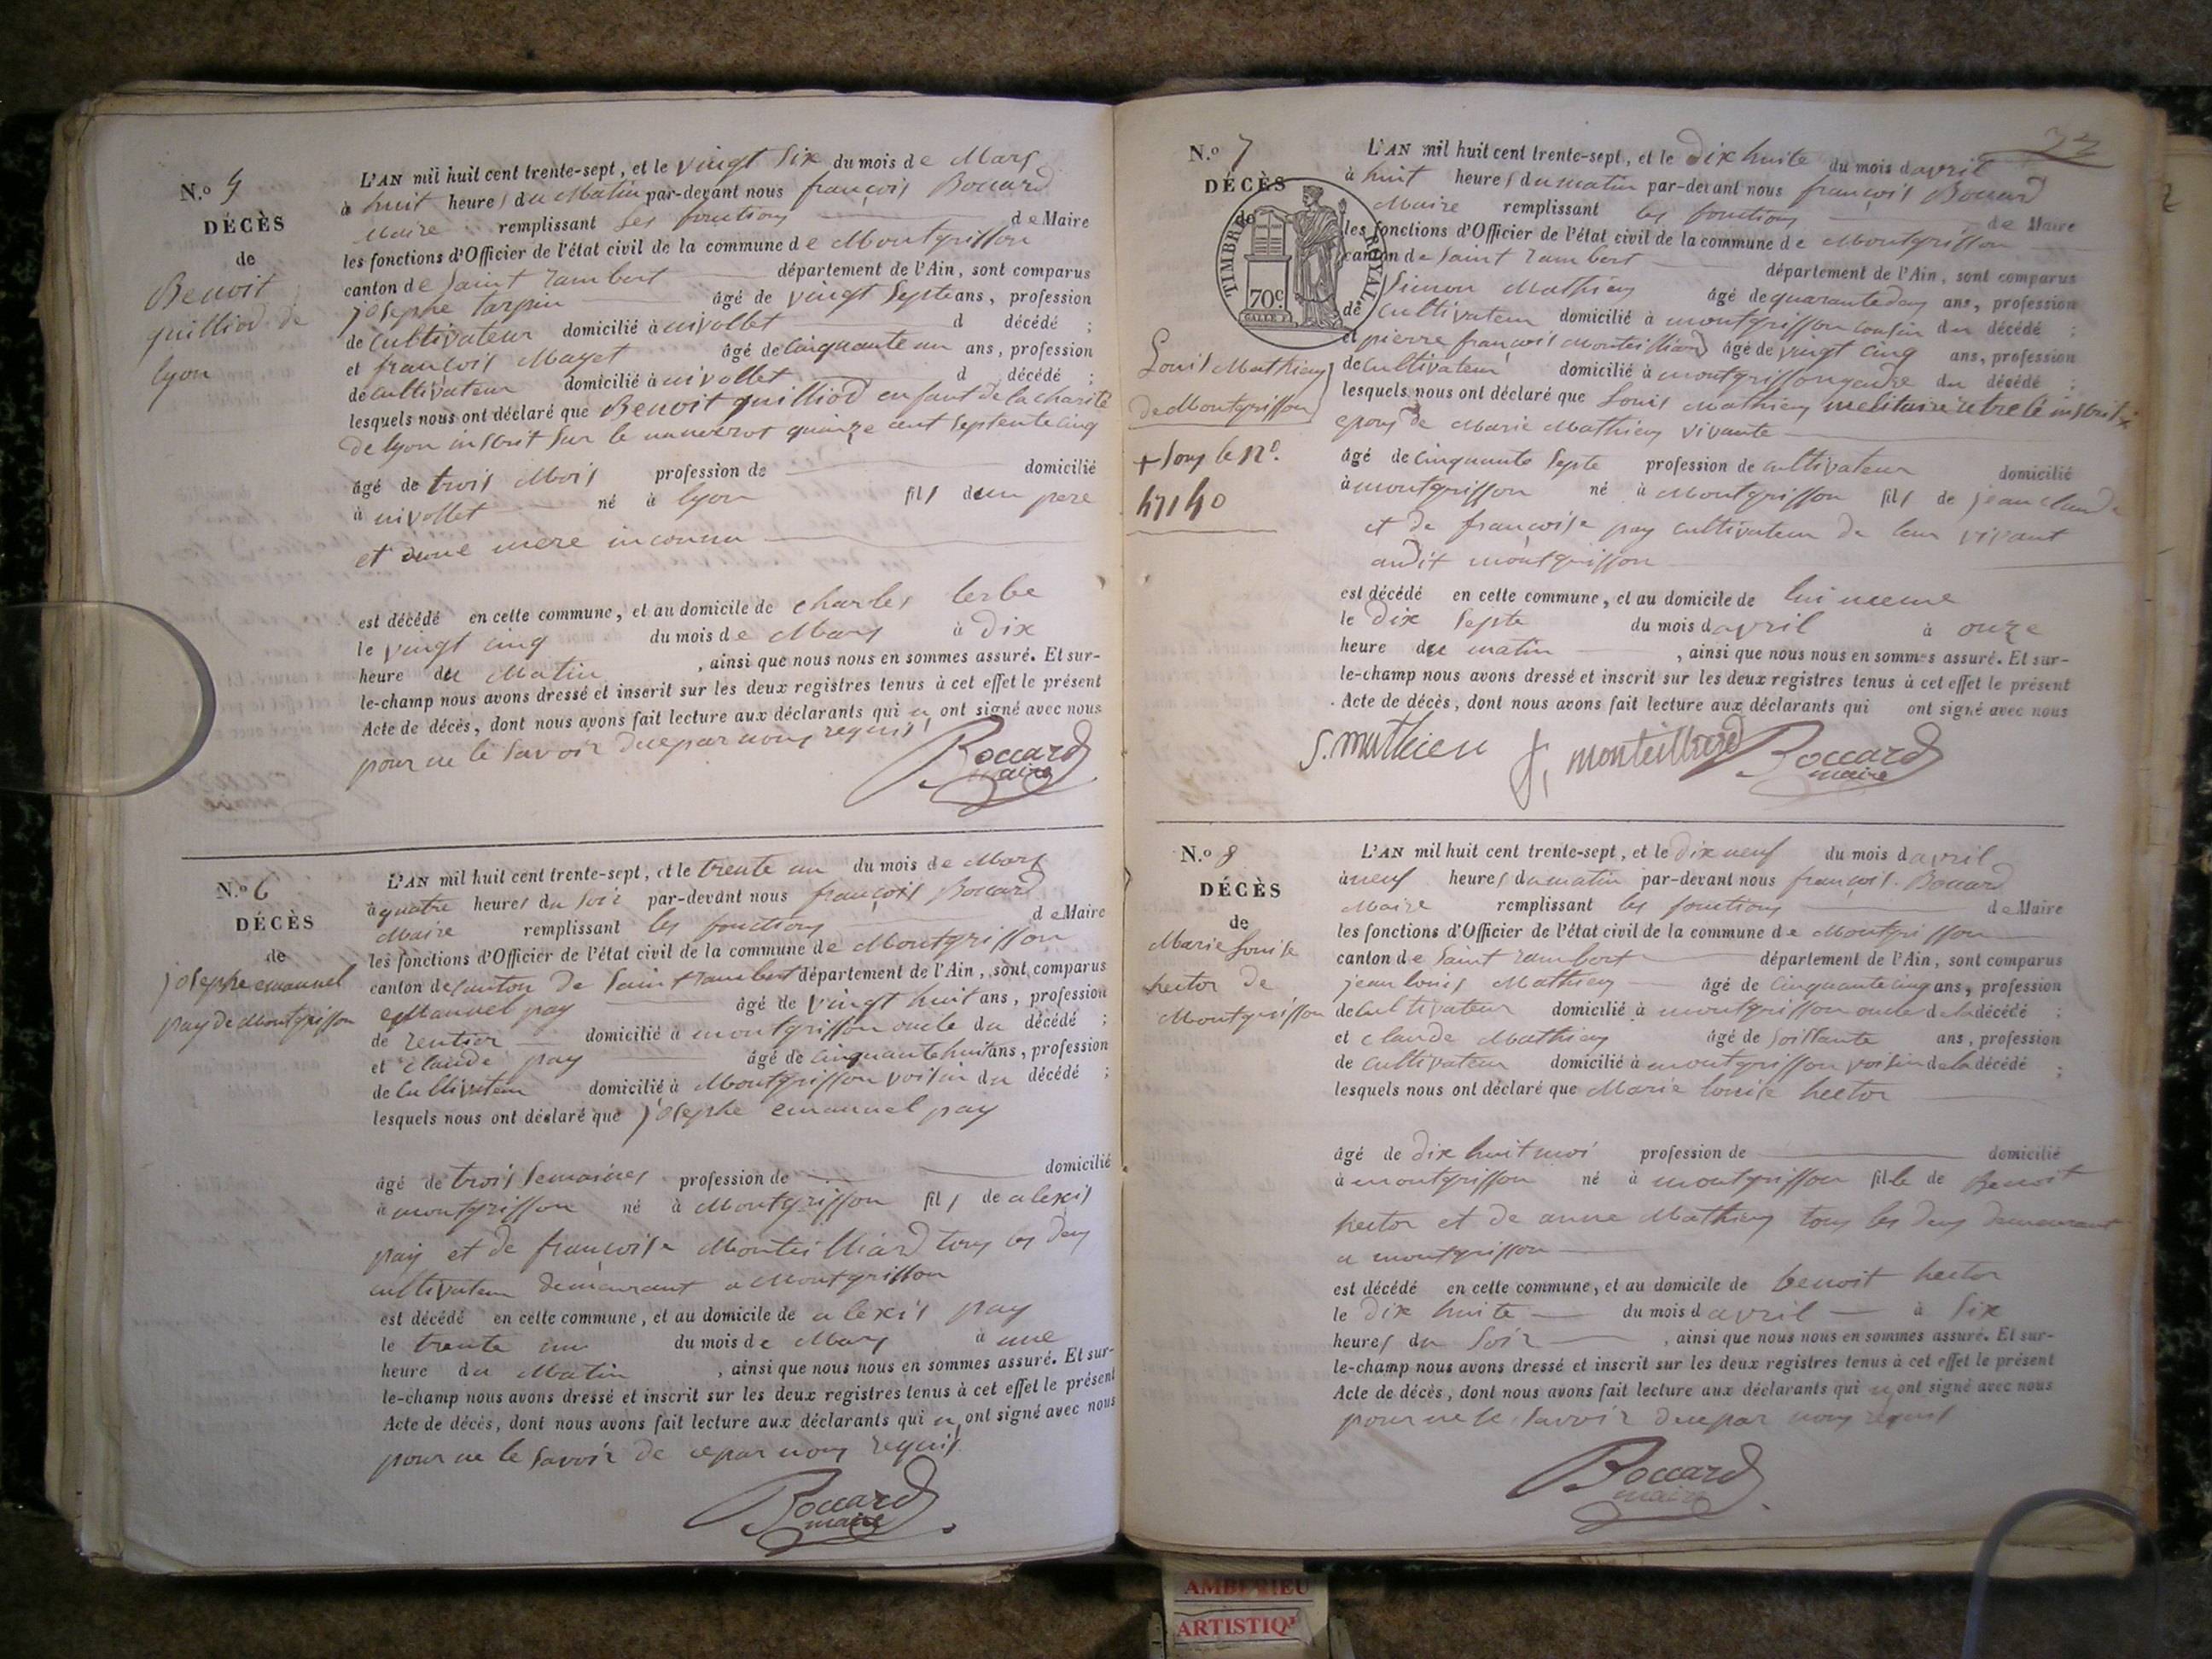 N.o 5
DÉCÈS
de
Benoit
quilliod de
lyon
L'AN mil huit cent trente-sept, et le vingt six du mois de Mars
à huit heures du Matin par-devant nous françois Boccard
Maire remplissant les fonctions de Maire
les fonctions d'Officier de l'état civil de la commune de Montgriffon
canton de Saint rambert département de l'Ain, sont comparus
josephe tarpin âgé de vingt Septe ans, profession
de Cultivateur domicilié à nivollet d décédé ;
et francois Mayet âgé de Cinquante un ans, profession
de cultivateur domicilié à nivollet d décédé ;
lesquels nous ont déclaré que Benoit quilliod enfant de la charité
de lyon inscrit sur le numerot quinze cent septente cinq
âgé de trois Mois profession de domicilié
à nivollet né à lyon fils dun pere
et dune mere inconnu
est décédé en cette commune, et au domicile de charles lerbe
le vingt cinq du mois de Mars à dix
heure du Matin , ainsi que nous nous en sommes assuré. Et sur-
le-champ nous avons dressé et inscrit sur les deux registres tenus à cet effet le présent
Acte de décès, dont nous avons fait lecture aux déclarants qui n ont signé avec nous
pour ne le savoir de ce par nous requis
Boccard
maire
N.o 6
DÉCÈS
de
josephe emanuel
pay de Montgriffon
L'AN mil huit cent trente-sept, et le trente un du mois de Mars
à quatre heures du soir par-devant nous françois Boccard
Maire remplissant les fonctions de Maire
les fonctions d'Officier de l'état civil de la commune de Montgriffon
canton de canton de Saint rambert département de l'Ain, sont comparus
eManuel pay âgé de vingt huit ans, profession
de rentier domicilié à montgriffon oncle du décédé ;
et claude pay âgé de cinquante huit ans, profession
de Cultivateur domicilié à Montgriffon voisin du décédé ;
lesquels nous ont déclaré que josephe emanuel pay
âgé de trois semaines profession de domicilié
à montgriffon né à Montgriffon fils de alexis
pay et de francoise Monteilliard tous les deux
cultivateur demeurant a Montgriffon
est décédé en cette commune, et au domicile de alexis pay
le trente un du mois de Mars à une
heure du Matin , ainsi que nous nous en sommes assuré. Et sur-
le-champ nous avons dressé et inscrit sur les deux registres tenus à cet effet le présent
Acte de décès, dont nous avons fait lecture aux déclarants qui n ont signé avec nous
pour ne le savoir de ce par nous requis
Boccard
maire
N.o 7
DÉCÈS
de
TIMBRE ROYAL
70c
Louis Mathieu
de Montgriffon
+ sous le No.
47140
L'AN mil huit cent trente-sept, et le Dix huite du mois d avril
à huit heures du matin par-devant nous françois Boccard
Maire remplissant les fonctions de Maire
les fonctions d'Officier de l'état civil de la commune de Montgriffon
canton de Saint rambert département de l'Ain, sont comparus
Simon Mathieu âgé de quarante deux ans, profession
de Cultivateur domicilié à montgriffon cousin du décédé ;
et pierre françois Monteilliard âgé de vingt cinq ans, profession
de cultivateur domicilié à montgriffon gendre du décédé ;
lesquels nous ont déclaré que Louis Mathieu melitaire retrelé inscrit +
epoux de Marie Mathieu vivante
âgé de cinquante septe profession de cultivateur domicilié
à montgriffon né à Montgriffon fils de jean claude
et de francoise pay cultivateur de leur vivant
audit montgriffon
est décédé en cette commune, et au domicile de lui meme
le Dix septe du mois d avril à onze
heure du matin , ainsi que nous nous en sommes assuré. Et sur-
le-champ nous avons dressé et inscrit sur les deux registres tenus à cet effet le présent
Acte de décès, dont nous avons fait lecture aux déclarants qui ont signé avec nous
S. mathieu f, monteilliard Boccard
maire
N.o 8
DÉCÈS
de
Marie Louise
hector de
Montgriffon
L'AN mil huit cent trente-sept, et le dix neuf du mois d avril
à neuf heures du matin par-devant nous françois Boccard
Maire remplissant les fonctions de Maire
les fonctions d'Officier de l'état civil de la commune de Montgriffon
canton de Saint rambert département de l'Ain, sont comparus
jean louis Mathieu âgé de Cinquante cinq ans, profession
de Cultivateur domicilié à montgriffon oncle de la décédé ;
et claude Mathieu âgé de soissante ans, profession
de cultivateur domicilié à montgriffon voisin de la décédé ;
lesquels nous ont déclaré que Marie louise hector
âgé de dix huit moi profession de domicilié
à montgriffon né à montgriffon fille de Benoit
hector et de anne Mathieu tous les deux demeurant
a montgriffon
est décédé en cette commune, et au domicile de benoit hector
le Dix huite du mois d avril à six
heures du soir , ainsi que nous nous en sommes assuré. Et sur-
le-champ nous avons dressé et inscrit sur les deux registres tenus à cet effet le présent
Acte de décès, dont nous avons fait lecture aux déclarants qui n ont signé avec nous
pour ne le savoir de ce par nous requis
Boccard
maire
AMBERIEU
ARTISTIQ